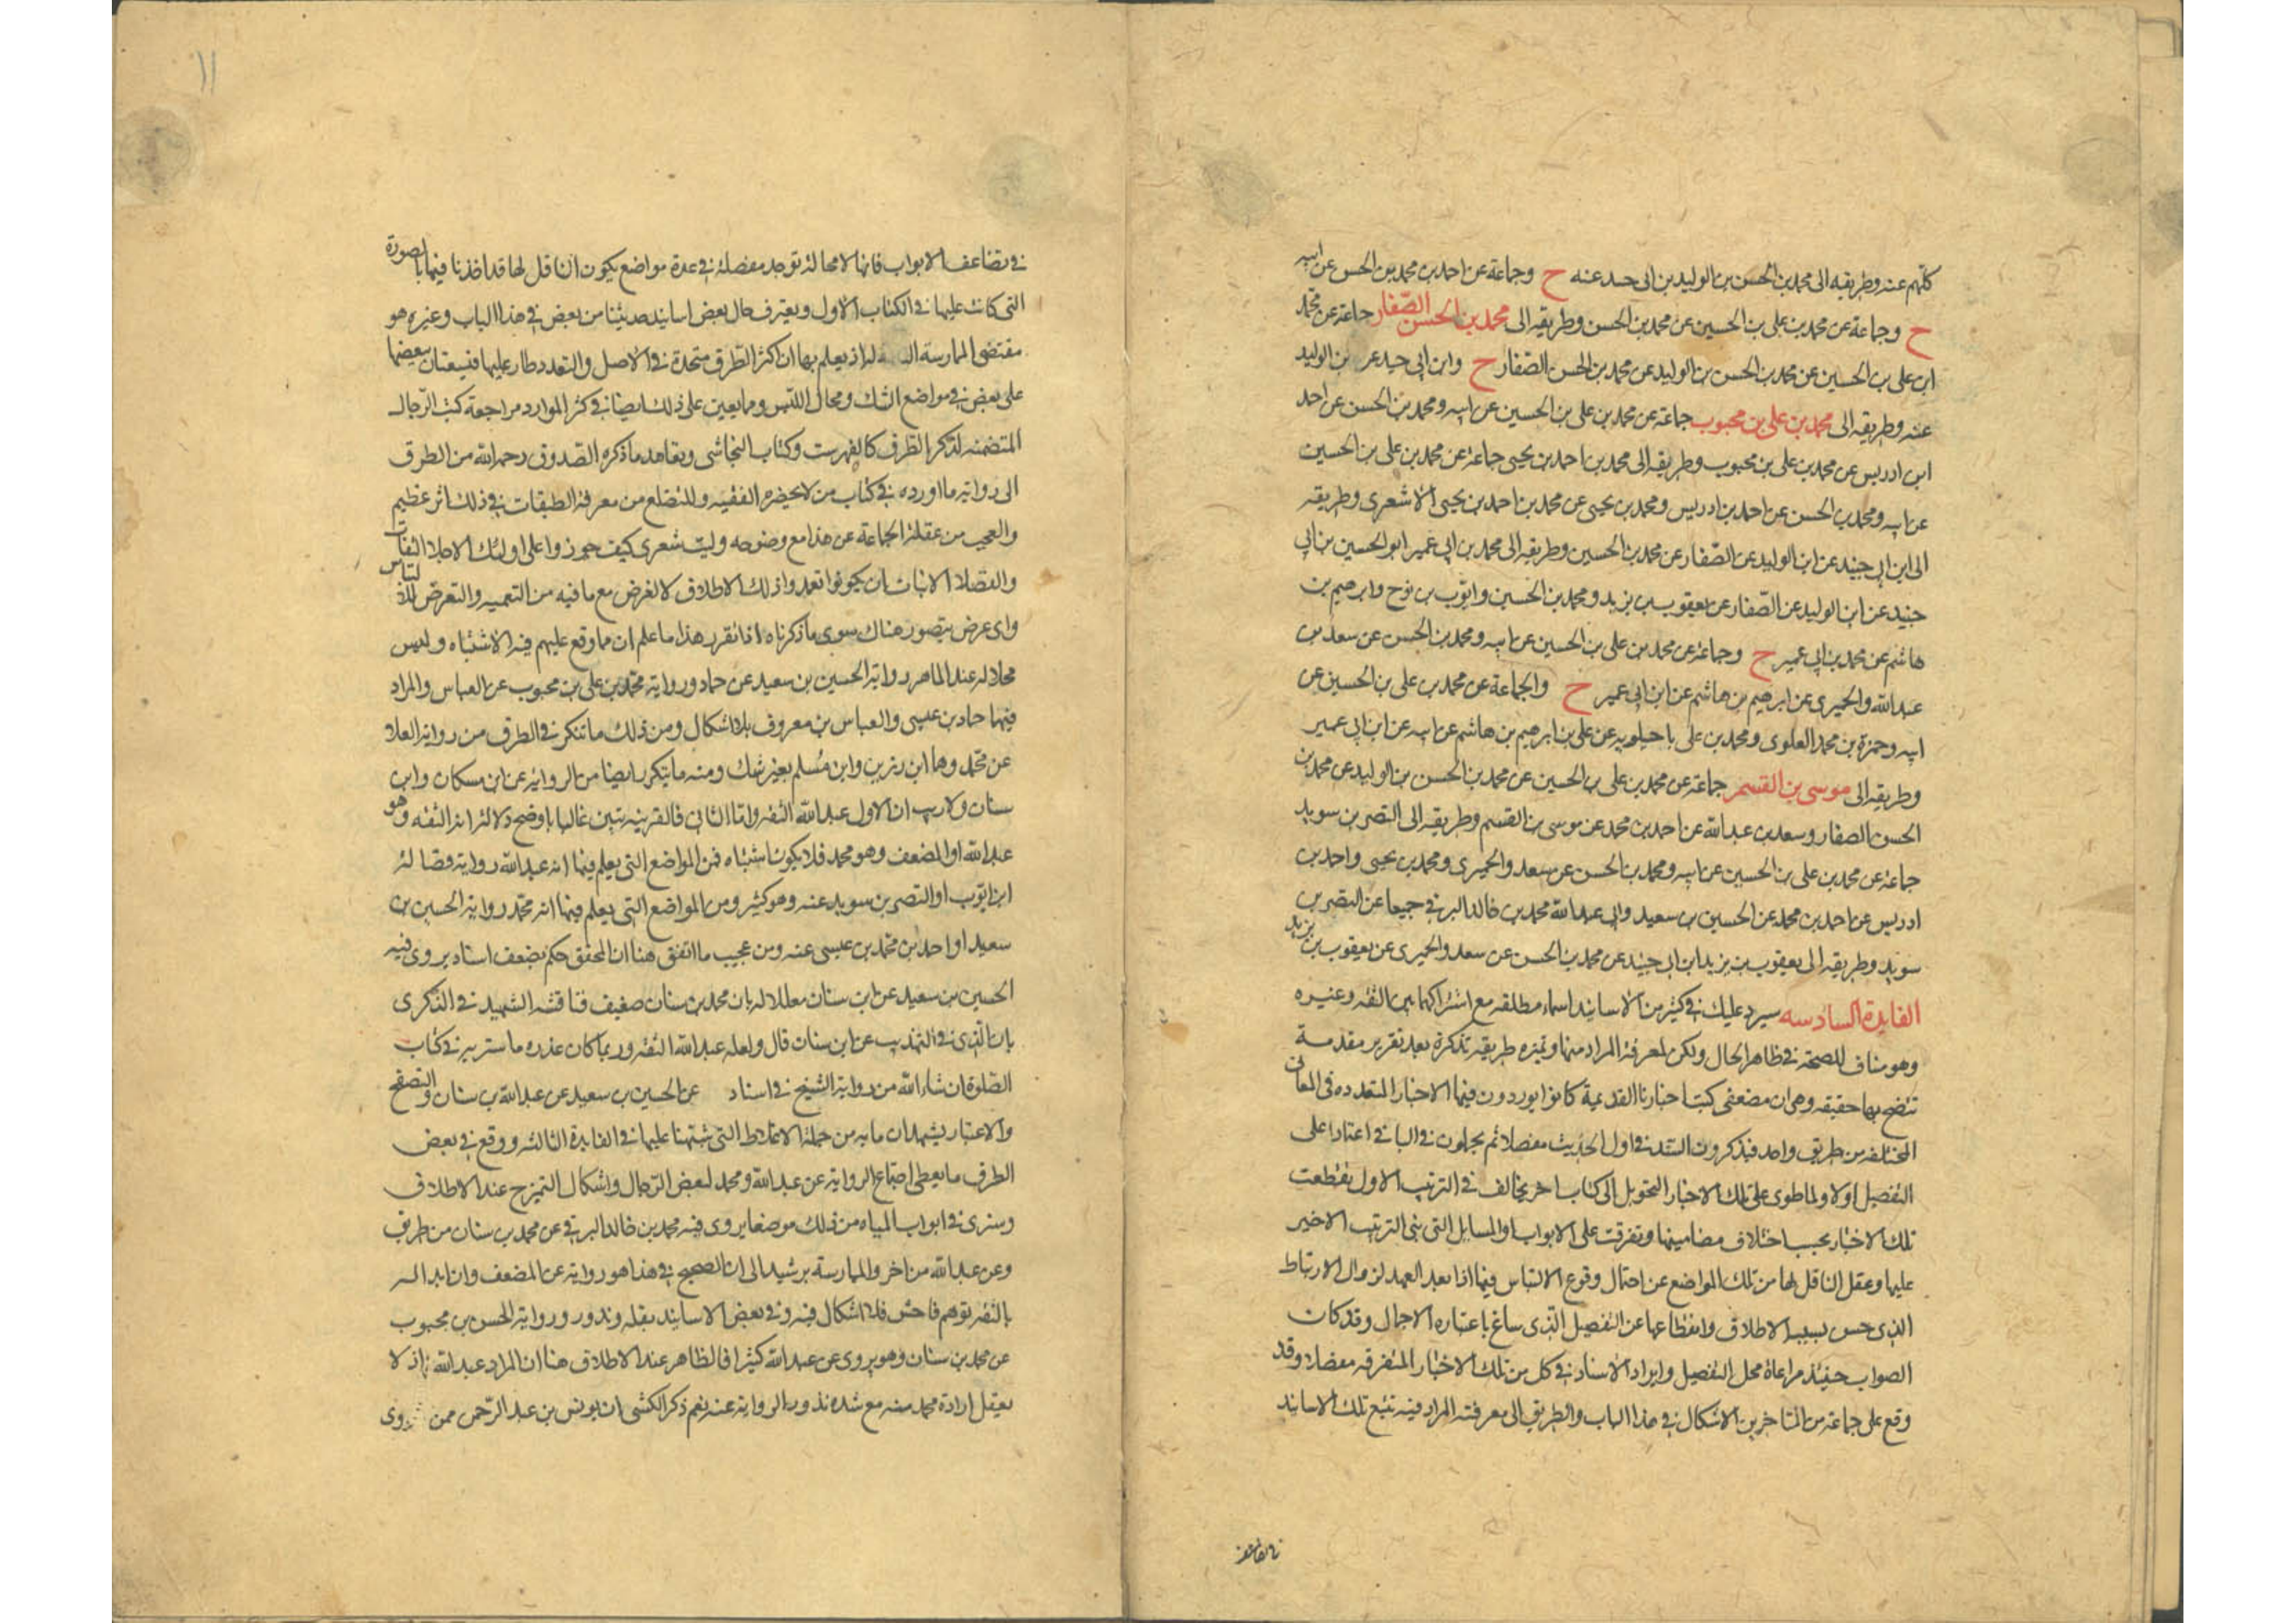 كلهم عنه وطريقه الى محمد بن الحسن بن الوليد بن ابى جيد عنه ح وجماعة عن احمد بن محمد بن الحسن عن ابيه
ح وجماعة عن محمد بن على بن الحسين عن محمد بن الحسن وطريقه الى محمد بن الحسن الصفار جماعة عن محمد
ابن على بن الحسين عن محمد بن الحسن بن الوليد عن محمد بن الحسن الصفار ح وابن ابى جيد عن بن الوليد
عنه وطريقه الى محمد بن على بن محبوب جماعة عن محمد بن على بن الحسين عن ابيه ومحمد بن الحسن عن احمد
ابن ادريس عن محمد بن على بن محبوب وطريقه الى محمد بن احمد بن يحيى جماعة عن محمد بن على بن الحسين
عن ابيه ومحمد بن الحسن عن احمد بن ادريس ومحمد بن يحيى عن محمد بن احمد بن يحيى الاشعرى وطريقه
الى ابن ابى جيد عن ابن الوليد عن الصفار عن محمد بن الحسين وطريقه الى محمد بن ابى عمير ابو الحسين بن ابى
جيد عن ابن الوليد عن الصفار عن يعقوب بن يزيد ومحمد بن الحسين وايوب بن نوح وابرهيم بن
هاشم عن محمد بن ابى عمير ح وجماعة عن محمد بن على بن الحسين عن ابيه ومحمد بن الحسن عن سعد بن
عبد الله والحميرى عن ابرهيم بن هاشم عن ابن ابى عمير ح والجماعة عن محمد بن على بن الحسين عن
ابيه وحمزة بن محمد العلوى ومحمد بن على ماجيلويه عن على بن ابرهيم بن هاشم عن ابيه عن ابن ابى عمير
وطريقه الى موسى بن القسم جماعة عن محمد بن على بن الحسين عن محمد بن الحسن بن الوليد عن محمد بن
الحسن الصفار وسعد بن عبد الله عن احمد بن محمد عن موسى بن القسم وطريقه الى النضر بن سويد
جماعة عن محمد بن على بن الحسين عن ابيه ومحمد بن الحسن عن سعد والحميرى ومحمد بن يحيى واحمد بن
ادريس عن احمد بن محمد عن الحسين بن سعيد وابى عبد الله محمد بن خالد البرقى جميعا عن النضر بن
سويد وطريقه الى يعقوب بن يزيد ابن ابى جيد عن محمد بن الحسن عن سعد والحميرى عن يعقوب بن يزيد
الفايدة السادسه سيرد عليك فى كثير من الاسانيد اسماء مطلقه مع اشتراكها بين الثقه وغيره
وهو مناف للصحة فى ظاهر الحال ولكن لمعرفة المراد منها وتميزه طريقه تذكرة بعد تقرير مقدمة
تتضح بها حقيقه وهى ان مصنفى كتب اخبارنا القديمة كانوا يوردون فيها الاخبار المتعدده فى المعانى
المختلفه من طريق واحد فيذكرون السند فى اول الحديث مفصلا ثم يجملون فى الباقى اعتمادا على
التفصيل اولا ولما طرى على تلك الاخبار التحويل الى كتاب اخر يخالف فى الترتيب الاول تقطعت
تلك الاخبار بحسب اختلاف مضامينها وتفرقت على الابواب او المسايل التى بنى الترتيب الاخير
عليها وغفل الناقل لها من تلك المواضع عن احتمال وقوع الالتباس فيها اذا بعد العهد لزوال الارتباط
الذى حسن بسببه الاطلاق وانقطاعها عن التفصيل الذى ساغ باعتباره الاجمال وقد كان
الصواب حينئذ مراعاة محل التفصيل وايراد الاسناد فى كل من تلك الاخبار المتفرقه مفصلا وقد
وقع على جماعة من المتاخرين الاشكال فى هذا الباب والطريق الى معرفة المراد فيه تتبع تلك الاسانيد
فى تضاعيف الابواب فانها لا محالة توجد مفصلة فى عدة مواضع يكون الناقل لها قد اخذنا فيها بالصورة
التى كانت عليها فى الكتاب الاول ويعترف حال بعض اسانيد حديثنا من بعض فى هذا الباب وغيره هو
مقتضى الممارسة له اذ يعلم بها ان اكثر الطرق متحدة فى الاصل والتعدد طار عليها فيستعان ببعضها
على بعض فى مواضع الشك ومحال اللبس ومما يعين على ذلك ايضا فى كثر الموارد مراجعة كتب الرجال
المتضمنه لذكر الطرق كالفهرست وكتاب النجاشى وتعاهد ما ذكره الصدوق رحمه الله من الطرق
الى رواية ما اورده فى كتاب من لا يحضره الفقيه وللتضلع من معرفة الطبقات فى ذلك اثر عظيم
والعجب من غفلة الجماعة عن هذا مع وضوحه وليت شعرى كيف جوزوا على اولئك الاجلا الثقات
والفضلا الاثبات ان يكونوا تعمدوا ذلك الاطلاق لا لغرض مع ما فيه من التعميه والتعرض للالتباس
واى غرض يتصور هناك سوى ما ذكرناه اذا تقرر هذا فاعلم ان مما وقع عليهم فيه الاشتباه وليس
محلا له عند الماهر رواية الحسين بن سعيد عن حماد ورواية محمد بن على بن محبوب عن العباس والمراد
فيهما حماد بن عيسى والعباس بن معروف بلا اشكال ومن ذلك ما تتكرر فى الطرق من رواية العلا
عن محمد وهما ابن رزين وابن مسلم بغير شك ومنه ما يتكرر ايضا من الرواية عن ابن مسكان وابن
سنان ولا ريب ان الاول عبد الله الثقه واما الثانى فالقرينه تبين غالبا باوضح دلالة انه الثقه وهو
عبد الله او المضعف وهو محمد فلا يكون اشتباه فمن المواضع التى يعلم فيها انه عبد الله رواية فضالة
ابن ايوب او النضر بن سويد عنه وهو كثير ومن المواضع التى يعلم فيها انه محمد رواية الحسين بن
سعيد او احمد بن محمد بن عيسى عنه ومن عجيب ما اتفق هنا ان المحقق حكم بضعف اسناد يروى فيه
الحسين بن سعيد عن ابن سنان معللا له بان محمد بن سنان ضعيف فناقشه الشهيد فى الذكرى
بان الذى فى التهذيب عن ابن سنان قال ولعله عبد الله الثقه وربما كان عذره ما ستريه فى كتاب
الصلوة ان شاء الله من رواية الشيخ فى اسناد عن الحسين بن سعيد عن عبد الله بن سنان والتصفح
والاعتبار يشهدان بانه من جملة الاغلاط التى نبهنا عليها فى الفايدة الثالثه ووقع فى بعض
الطرق ما يعطى اجتماع الرواية عن عبد الله ومحمد لبعض الرجال واشكال التميز ح عند الاطلاق
وسنرى فى ابواب المياه من ذلك موضعا يروى فيه محمد بن خالد البرقى عن محمد بن سنان من طريق
وعن عبد الله من اخر والممارسة يرشد الى ان الصحيح فى هذا هو رواية عن المضعف وان ابداله
بالثقه توهم فاحش فلا اشكال فيه وفى بعض الاسانيد بقلة وندور رواية الحسن بن محبوب
عن محمد بن سنان وهو يروى عن عبد الله كثيرا فالظاهر عند الاطلاق هنا ان المراد عبد الله اذ لا
يعقل ارادة محمد منه مع شدة ندور الرواية عنه نعم ذكر الكشى ان يونس بن عبد الرحمن ممن روى